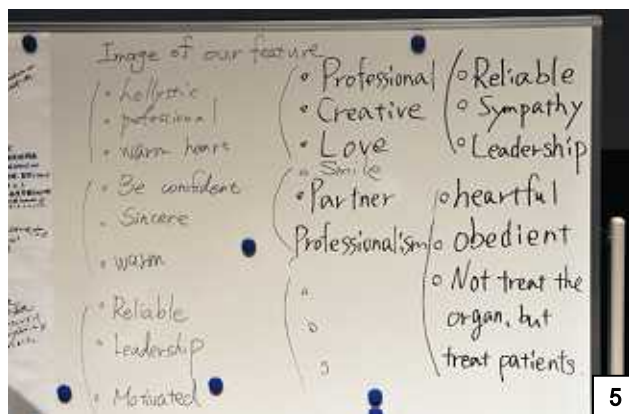 Image of our feature
• hollystic
• pofessional
• warm heart
• Be confident
• Sincere
• warm
• Reliable
• Leadership
• Motivated
• Professional
• Creative
• Love
• Smile
• Partner
Professionalism
• Reliable
• Sympathy
• Leadership
• heartful
• obedient
• Not treat the
organ, but
treat patients
5